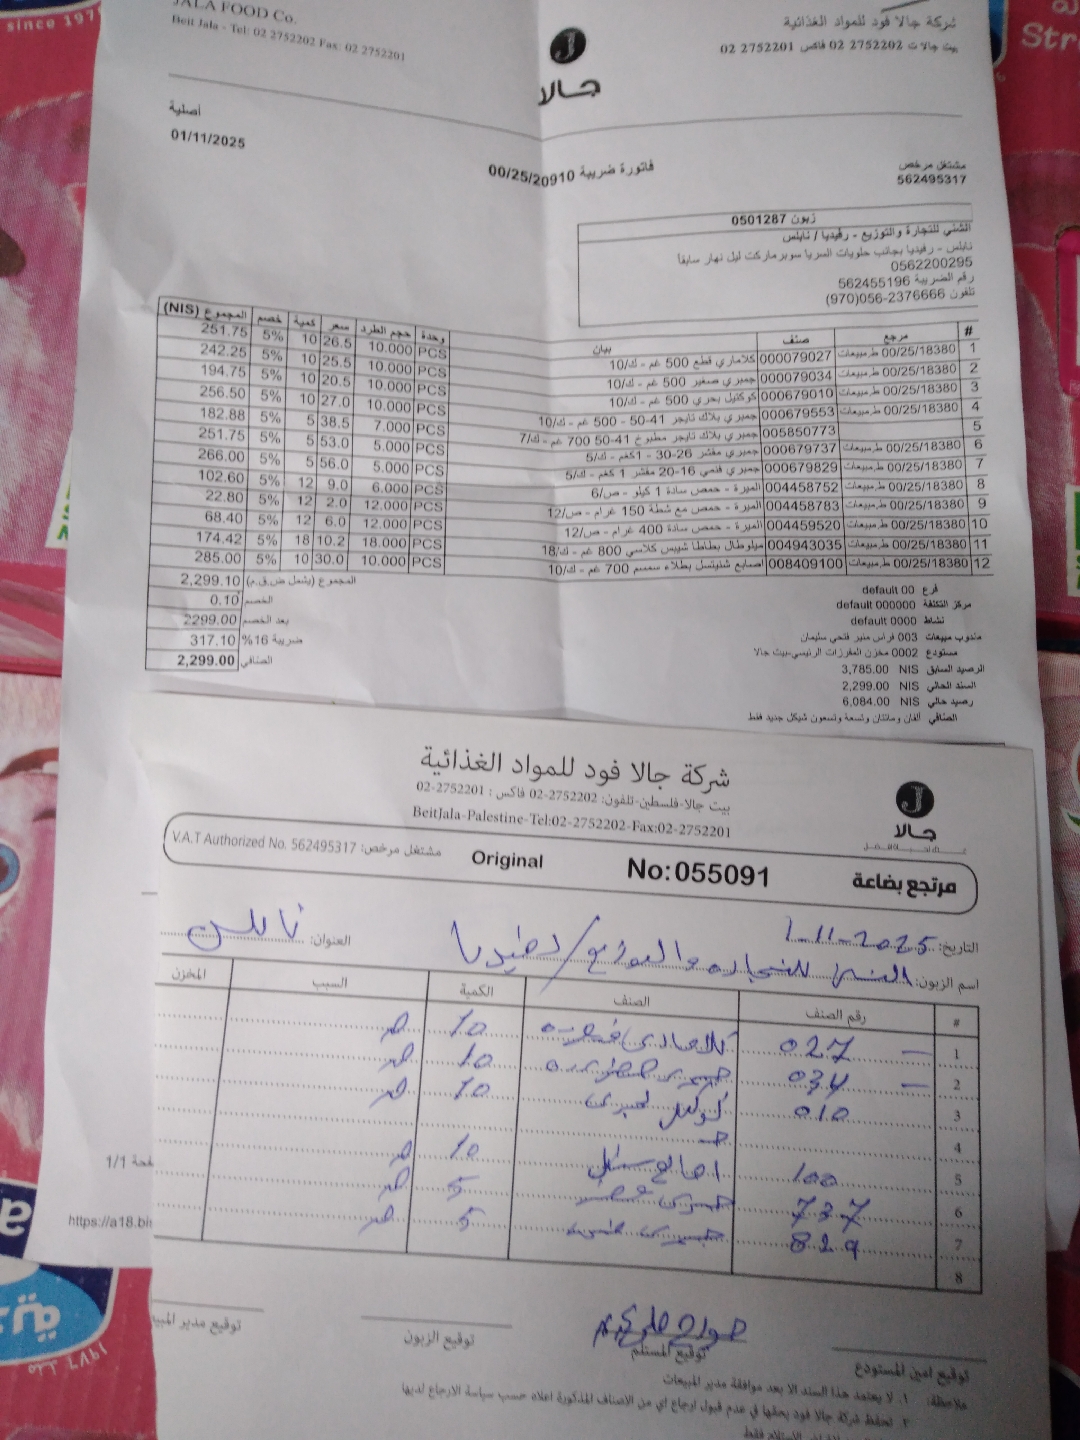 JALA FOOD Co.
Beit Jala - Tel: 02 2752202 Fax: 02 2752201
شركة جالا فود للمواد الغذائية
بيت جالا ت 2752202 02 فاكس 2752201 02
جالا
أصلية
01/11/2025
فاتورة ضريبة 00/25/20910
مشتغل مرخص
562495317
زبون 0501287
الشني للتجارة والتوزيع - رفيديا / نابلس
نابلس - رفيديا بجانب حلويات السريا سوبرماركت ليل نهار سابقا
0562200295
رقم الضريبة 562455196
تلفون 2376666-056(970)
# مرجع صنف بيان وحدة حجم الطرد سعر كمية خصم المجموع (NIS)
1 00/25/18380 ط.مبيعات 000079027 كلاماري قطع 500 غم - ك/10 PCS 10.000 26.5 10 5% 251.75
2 00/25/18380 ط.مبيعات 000079034 جمبري صغير 500 غم - ك/10 PCS 10.000 25.5 10 5% 242.25
3 00/25/18380 ط.مبيعات 000679010 كوكتيل بحري 500 غم - ك/10 PCS 10.000 20.5 10 5% 194.75
4 00/25/18380 ط.مبيعات 000679553 جمبري بلاك تايجر 41-50 - 500 غم - ك/10 PCS 10.000 27.0 10 5% 256.50
5 005850773 جمبري بلاك تايجر مطبوخ 41-50 700 غم - ك/7 PCS 7.000 38.5 5 5% 182.88
6 00/25/18380 ط.مبيعات 000679737 جمبري مقشر 26-30 - 1كغم - ك/5 PCS 5.000 53.0 5 5% 251.75
7 00/25/18380 ط.مبيعات 000679829 جمبري فنحي 16-20 مقشر 1 كغم - ك/5 PCS 5.000 56.0 5 5% 266.00
8 00/25/18380 ط.مبيعات 004458752 الميرة - حمص سادة 1 كيلو - ص/6 PCS 6.000 9.0 12 5% 102.60
9 00/25/18380 ط.مبيعات 004458783 الميرة - حمص مع شطة 150 غرام - ص/12 PCS 12.000 2.0 12 5% 22.80
10 00/25/18380 ط.مبيعات 004459520 الميرة - حمص سادة 400 غرام - ص/12 PCS 12.000 6.0 12 5% 68.40
11 00/25/18380 ط.مبيعات 004943035 ميلوطال بطاطا شيبس كلاسي 800 غم - ك/18 PCS 18.000 10.2 18 5% 174.42
12 00/25/18380 ط.مبيعات 008409100 اصابع شنيتسل بطلاء سمسم 700 غم - ك/10 PCS 10.000 30.0 10 5% 285.00
المجموع (يشمل ض.ق.م) 2,299.10
الخصم 0.10
بعد الخصم 2299.00
ضريبة 16% 317.10
الصافي 2,299.00
فرع 00 default
مركز التكلفة 000000 default
نشاط 0000 default
مندوب مبيعات 003 فراس منير فتحي سليمان
مستودع 0002 مخزن المفرزات الرئيسي-بيت جالا
الرصيد السابق NIS 3,785.00
السند الحالي NIS 2,299.00
رصيد حالي NIS 6,084.00
الصافي ألفان ومائتان وتسعة وتسعون شيكل جديد فقط
شركة جالا فود للمواد الغذائية
بيت جالا-فلسطين-تلفون: 2752202-02 فاكس : 2752201-02
BeitJala-Palestine-Tel:02-2752202-Fax:02-2752201
جالا
مرتجع بضاعة No:055091 Original مشتغل مرخص: V.A.T Authorized No. 562495317
التاريخ: 1-11-2025
اسم الزبون: الشني للتجاره والتوزيع / رفيديا العنوان: نابلس
# رقم الصنف الصنف الكمية السبب المخزن
1 027 كلاماري 10
2 034 جمبري 10
3 010 كوكتيل بحري 10
4
5 100 اصابع 10
6 737 جمبري 5
7 829 جمبري 5
8
توقيع امين المستودع
توقيع المستلم
توقيع الزبون
توقيع مدير المبي
ملاحظة: ١. لا يعتمد هذا السند الا بعد موافقة مدير المبيعات
٢. تحتفظ شركة جالا فود بحقها في عدم قبول ارجاع اي من الاصناف المذكورة اعلاه حسب سياسة الارجاع لديها
الاستلام فقط
صفحة 1/1
https://a18.bi
since 197
Str